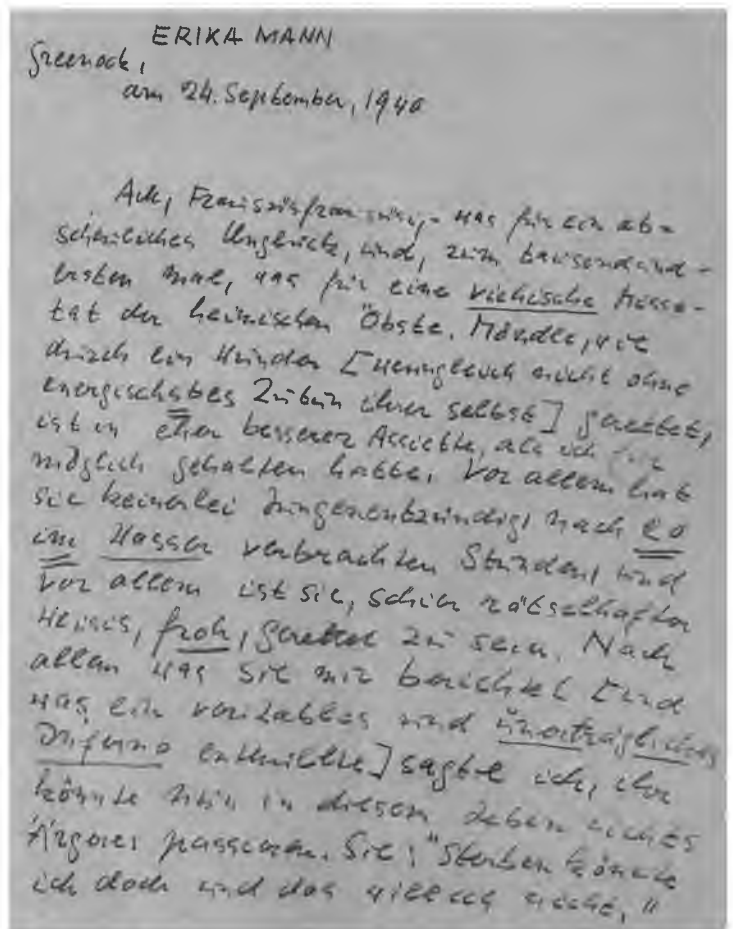 ERIKA MANN
Greenock,
am 24. September, 1940
Ach, Franzisfranzis, - was für ein ab-
scheuliches Unglück, und, zum tausendund-
ersten Mal, was für eine viehische Misse-
tat der heimischen Obste. Möndle, wie
durch ein Wunder [wenngleich nicht ohne
energischstes Zutun ihrer selbst] gerettet,
ist in eher besserer Assiette, als ich für
möglich gehalten hatte. Vor allem hat
sie keinerlei Lungenentzündig, nach 20
im Wasser verbrachten Stunden, und
vor allem ist sie, schier rätselhafter
Weisis, froh, gerettet zu sein. Nach
allem was sie mir berichtet [und
was ein veritables und unerträgliches
Inferno enthüllte] sagte ich, ihr
könnte nun in diesem Leben nichts
Ärgores passieren. Sie: "Sterben könnte
ich doch und das will ich nicht."